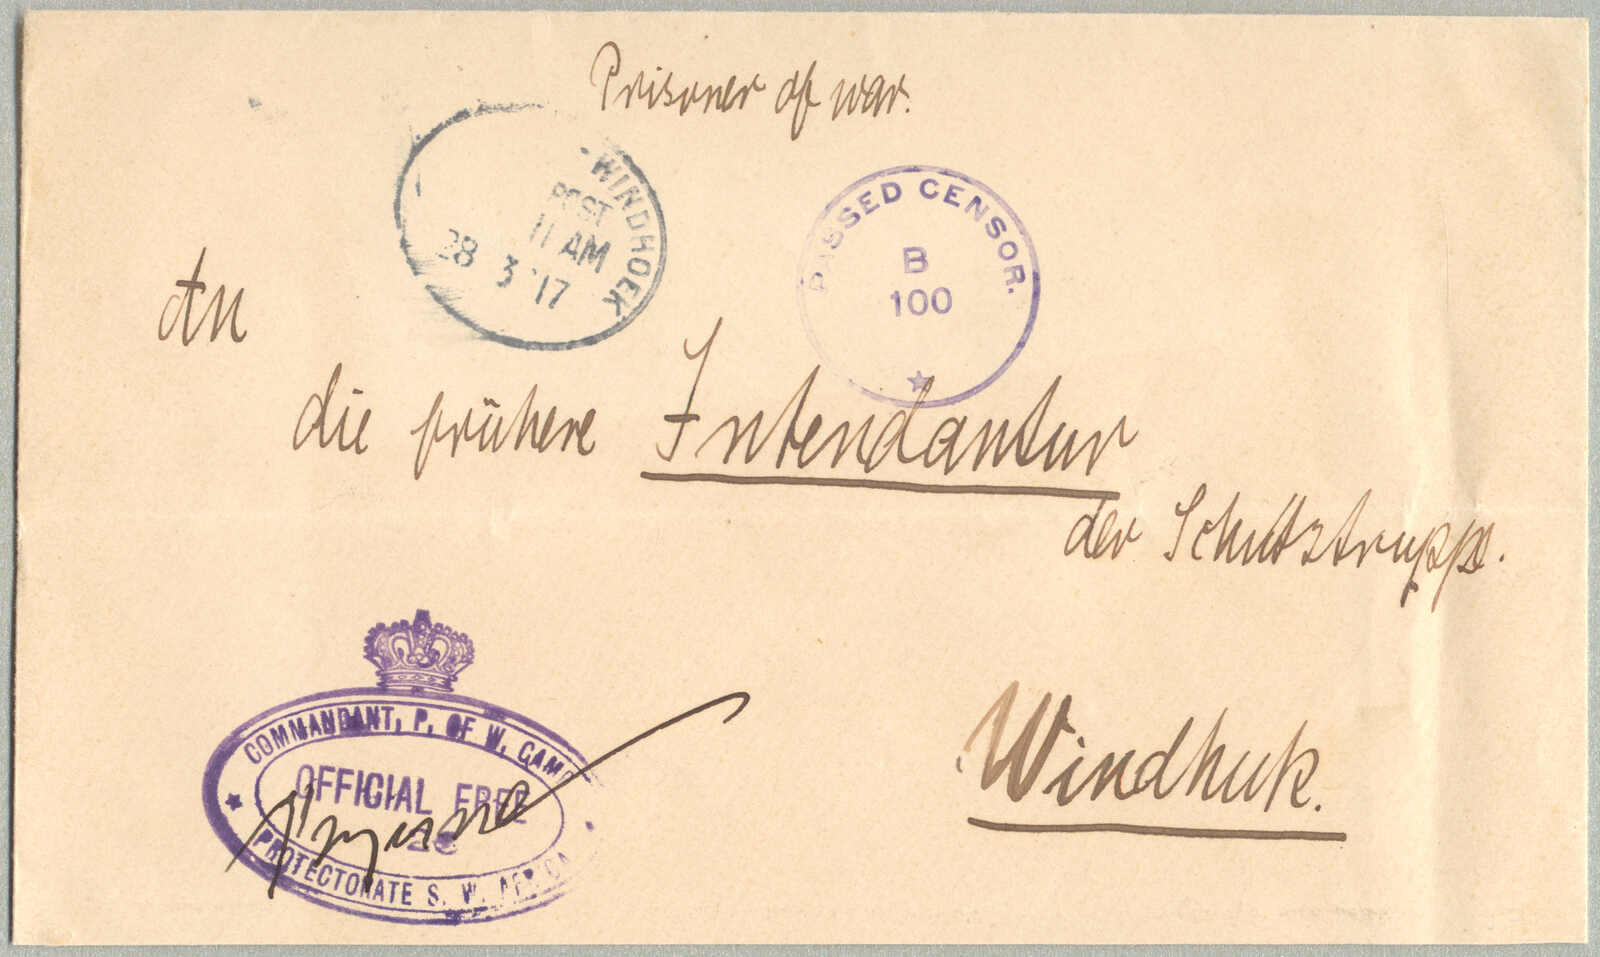 Prisoner of war.
WINDHOEK
POST
11 AM
28 3 '17
PASSED CENSOR.
B
100
An
die frühere Intendantur
der Schutztruppe.
Windhuk.
COMMANDANT, P. OF W. CAMP
OFFICIAL FREE
PROTECTORATE S. W. AFRICA